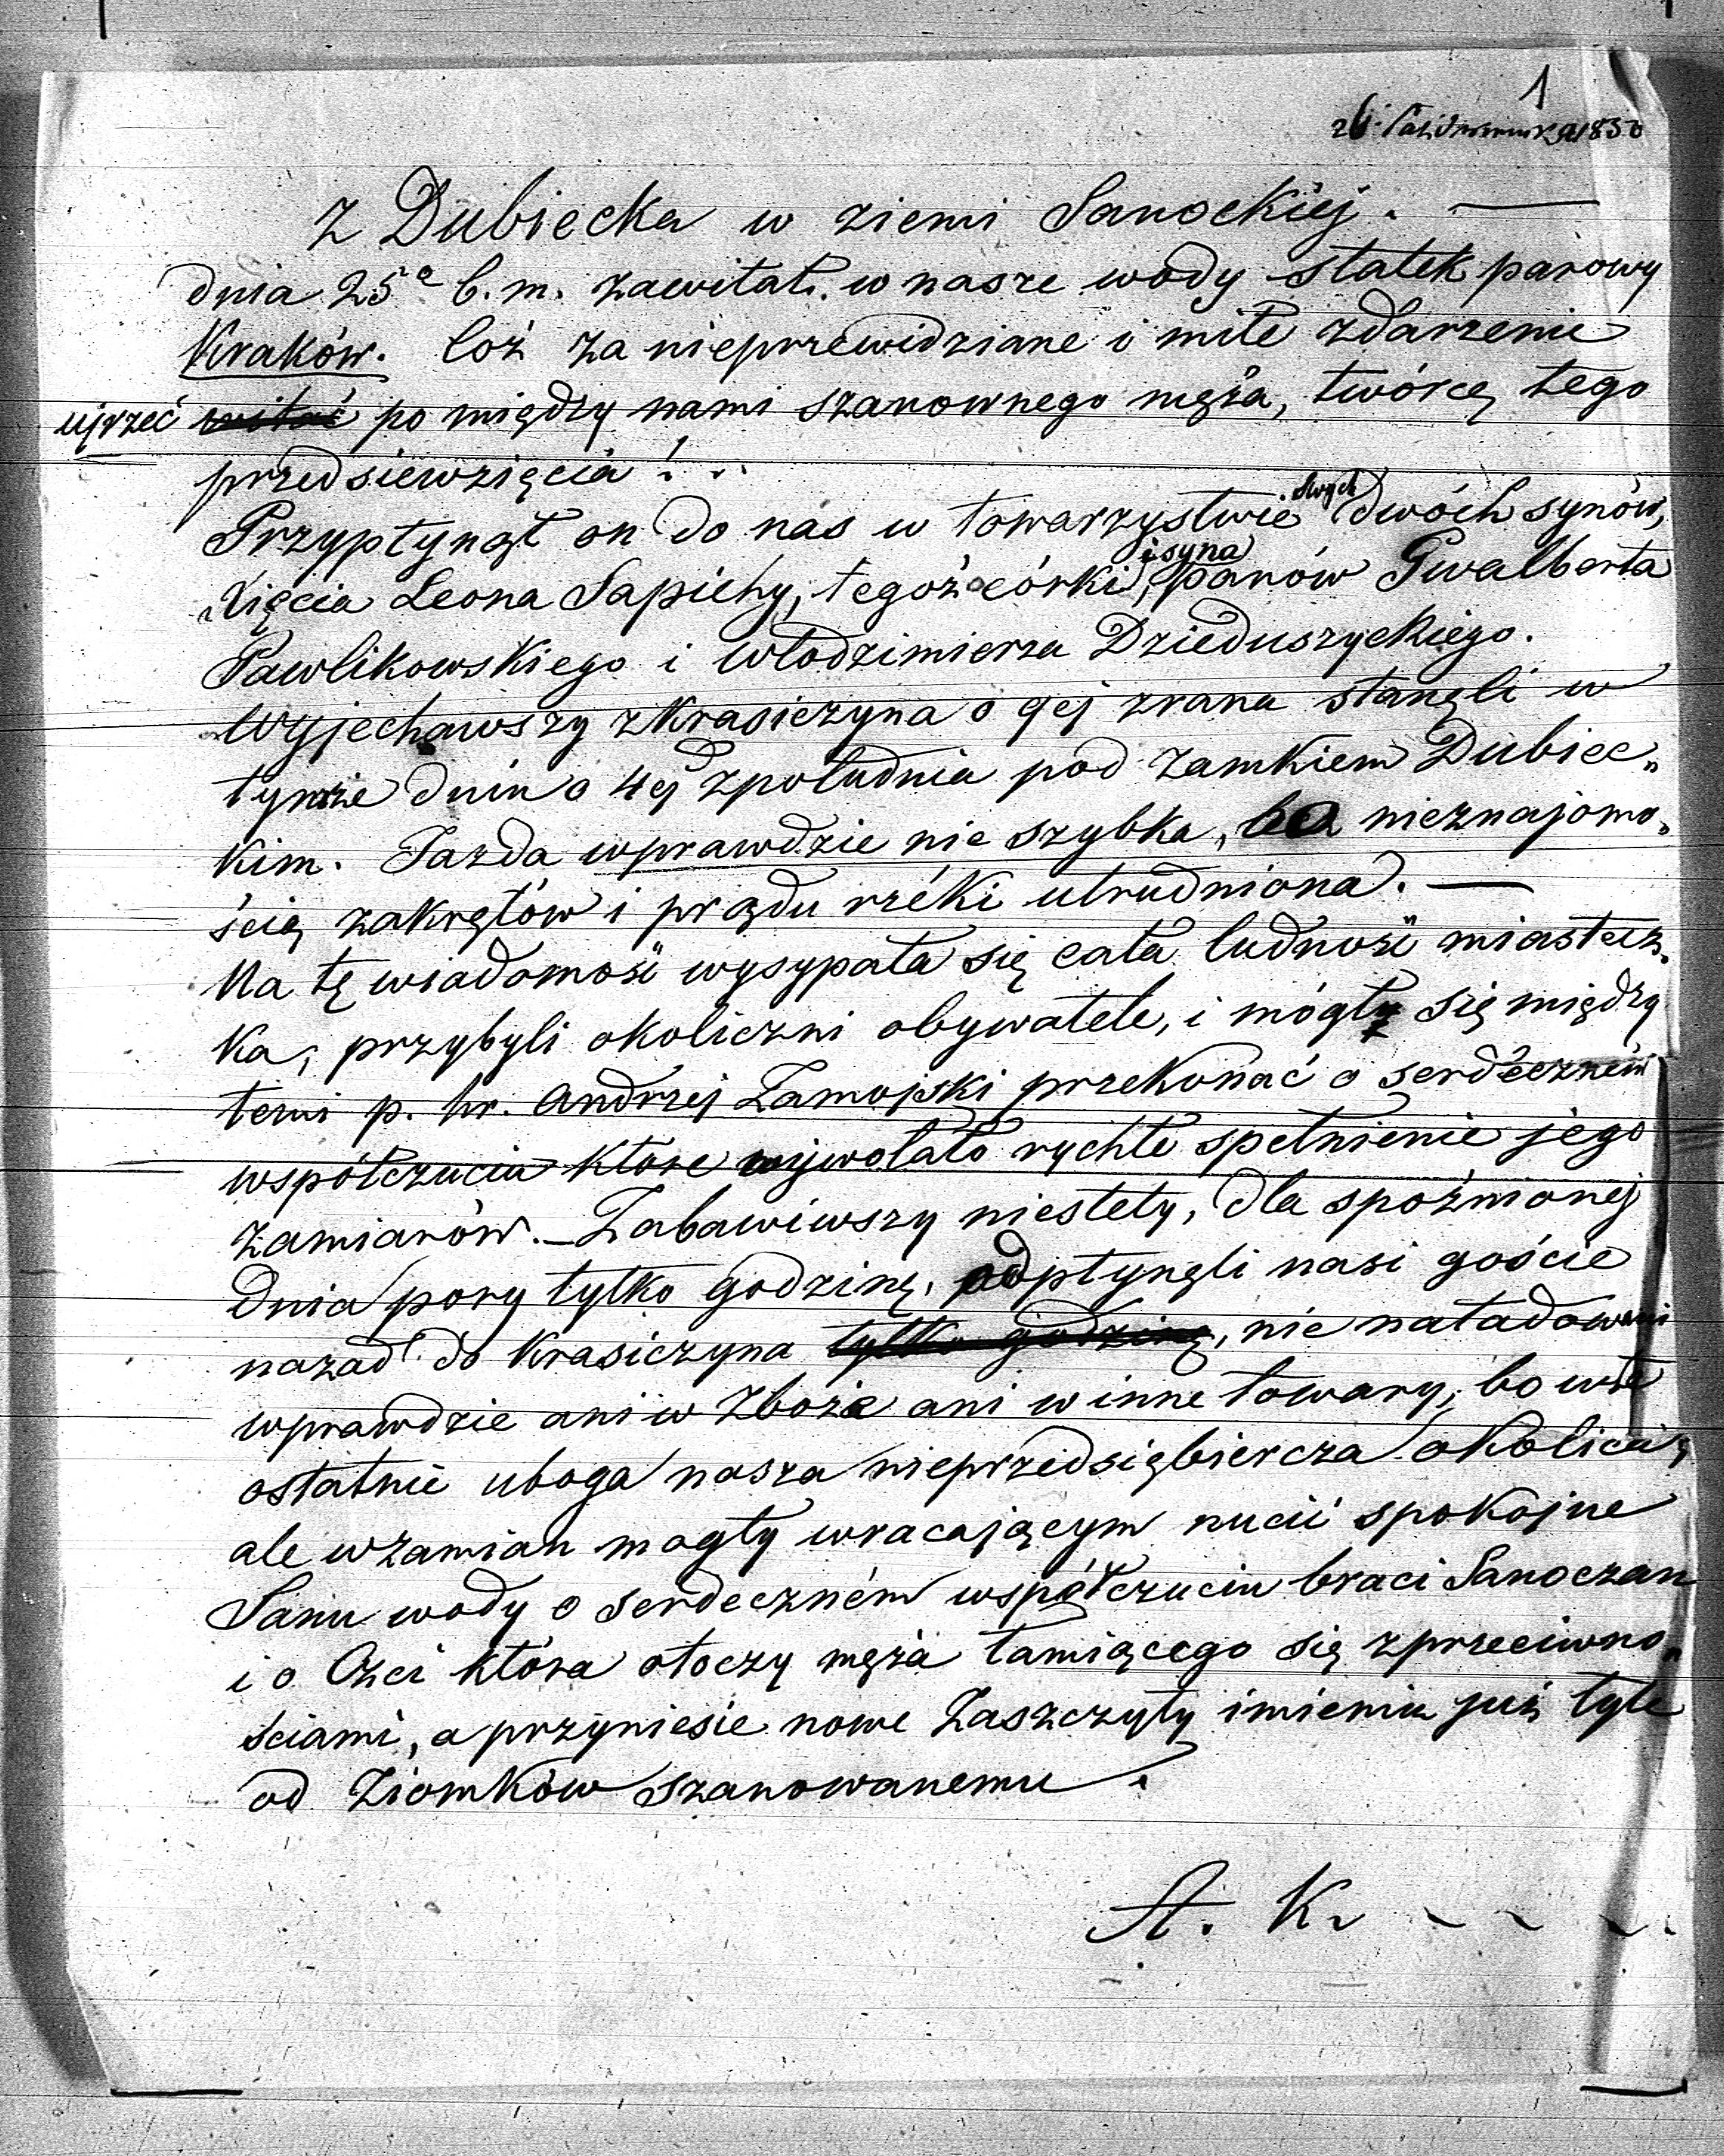 1
26. Października 1850
Z Dubiecka w ziemi Sanockiej. —
dnia 25º b. m. zawitał w nasze wody statek parowy
Kraków. Coż za nieprzewidziane i miłe zdarzenie
ujrzeć witać po między nami szanownego męża, twórcę tego
przedsiewzięcia! . .
Przypłynął on do nas w towarzystwie swych dwóch synów,
Xięcia Leona Sapiehy, tegoż córki, i syna panów Gwalberta
Pawlikowskiego i Włodzimierza Dzieduszyckiego.
Wyjechawszy z Krasiczyna o 9ej zrana stanęli w
tymże dniu o 4ej zpołudnia pod zamkiem Dubiec„
kim. Jazda wprawdzie nie szybka, bo nieznajomo„
ścią zakrętów i prądu rzéki utrudniona. —
Na tę wiadomość wysypała się cała ludność miastecz„
ka, przybyli okoliczni obywatele, i mógł się między
temi p. hr. Andrzej Zamojski przekonać o serdeczném
współczuciu które wywołało rychłe spełnienie jego
zamiarów. — Zabawiwszy niestety, dla spoźnionej
dnia pory tylko godzinę, odpłynęli nasi goście
nazad do Krasiczyna tylko godzinę, nie naładowani
wprawdzie ani w zboże ani w inne towary, bo w te
ostatnie uboga nasza nieprzedsiębiercza okolica,
ale wzamian mogły wracającym nucić spokojne
Sanu wody o serdeczném współczuciu braci Sanoczan
i o czci która otoczy męża łamiącego się z przeciwno„
ściami, a przyniesie nowe zaszczyty imieniu już tyle
od Ziomków szanowanemu.
A. K.